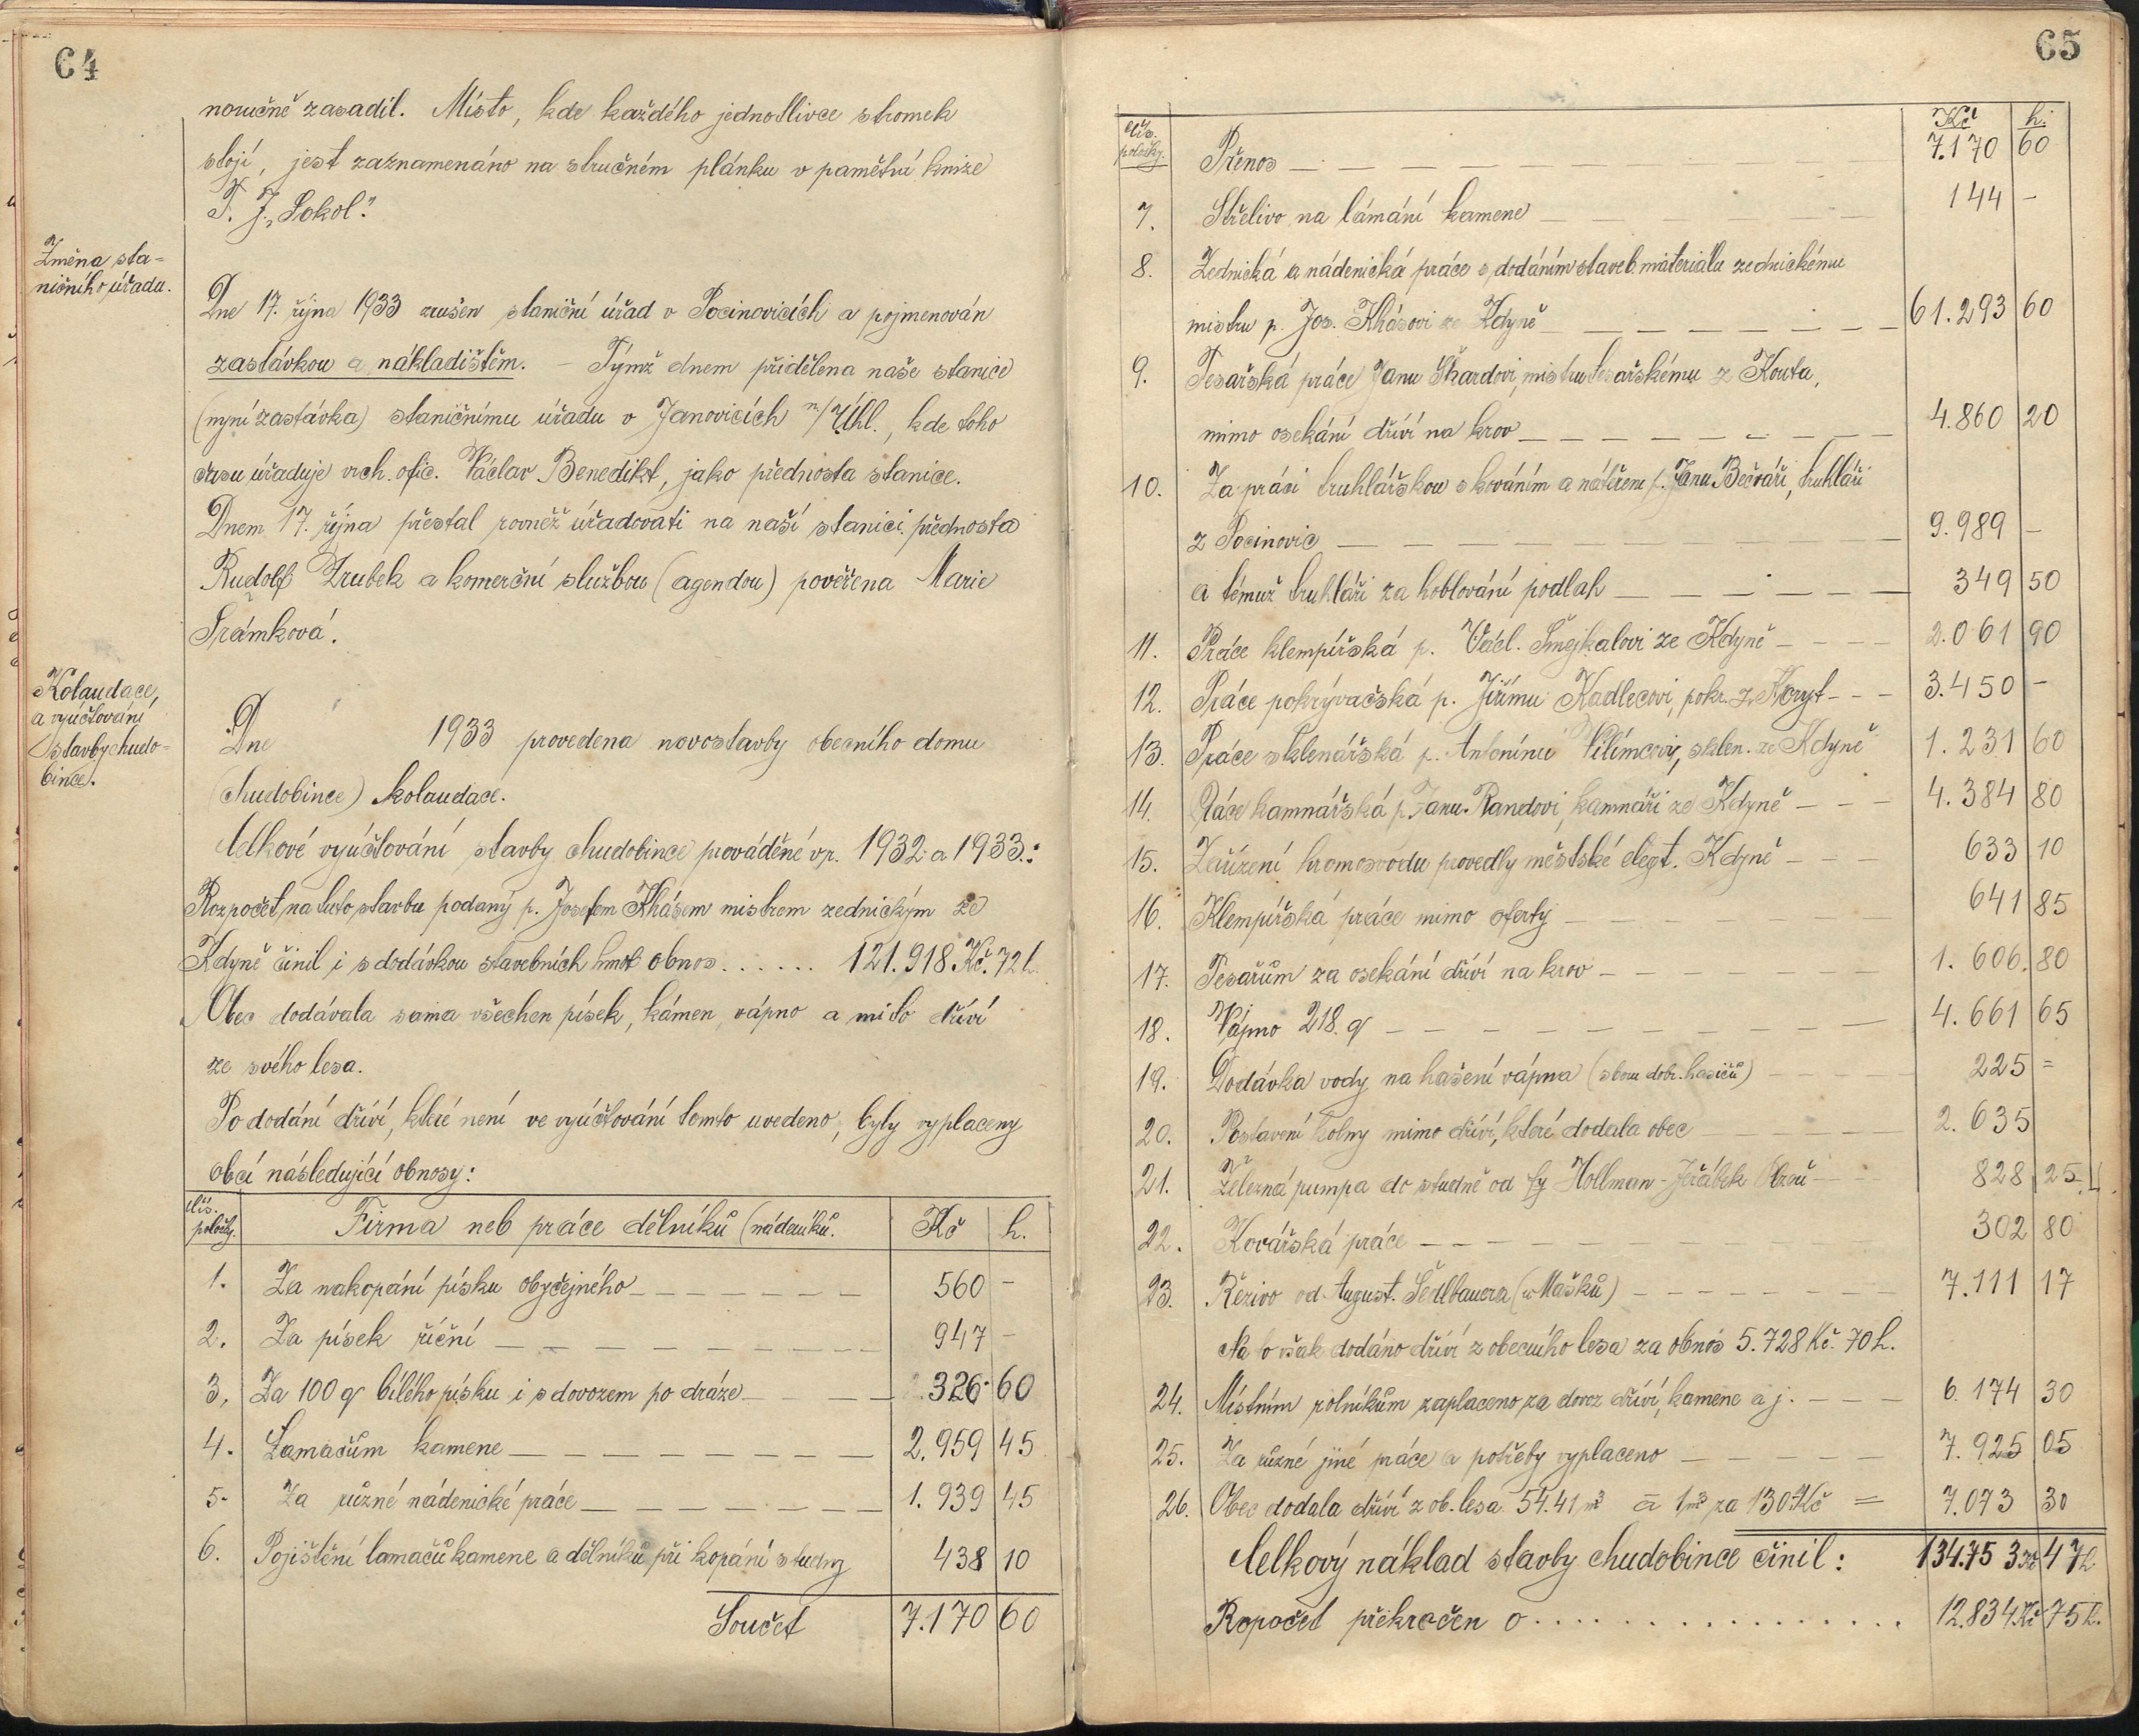 64
noručně zasadil. Místo, kde každého jednotlivce stromek
stojí, jest zaznamenáno na stručném plánku v pamětní knize
T. J. „Sokol“.
Změna sta-
ničního úřadu.
Dne 17. října 1933 zrušen staniční úřad v Pocinovicích a pojmenován
zastávkou a nákladištěm. – Týmž dnem přidělena naše stanice
(nyní zastávka) staničnímu úřadu v Janovicích n/Úhl., kde toho
času úřaduje vrch. ofic. Václav Benedikt, jako přednosta stanice.
Dnem 17. října přestal rovněž úřadovati na naší stanici přednosta
Rudolf Zrubek a komerční službou (agendou) pověřena Marie
Šrámková.
Kolaudace,
a vyúčtování
stavby chudo-
bince.
Dne 1933 provedena novostavby obecního domu
(chudobince) kolaudace.
Celkové vyúčtování stavby chudobince prováděné v r. 1932 a 1933.:
Rozpočet na tuto stavbu podaný p. Josefem Khásem mistrem zednickým ze
Kdyně činil i s dodávkou stavebních hmot obnos ...... 121.918 Kč. 72 h.
Obec dodávala sama všechen písek, kámen, vápno a mito dříví
ze svého lesa.
Po dodání dříví, které není ve vyúčtování tomto uvedeno, byly vyplaceny
obcí následující obnosy:
Čís. položky. Firma neb práce dělníků (nádeníků. Kč h.
1. Za nakopání písku obyčejného – – – – – – – 560 –
2. Za písek říční – – – – – – – – – 947 –
3. Za 100 q bílého písku i s dovozem po dráze – – – 326 60
4. Lamačům kamene – – – – – – – 2.959 45
5. Za různé nádenické práce – – – – – – 1.939 45
6. Pojištění lamačů kamene a dělníků při kopání studny 438 10
Součet 7.170 60
65
Čís. položky. Kč h.
Přenos – – – – – – – 7.170 60
7. Střelivo na lámání kamene – – – – – 144 –
8. Zednická a nádenická práce s dodáním staveb. materiálu zednickému
mistru p. Jos. Khásovi ze Kdyně – – – – – – 61.293 60
9. Tesařská práce Janu Škardovi, mistru tesařskému z Kouta,
mimo osekání dříví na krov – – – – – – – – – 4.860 20
10. Za práci truhlářskou s kováním a nátěrem p. Janu Bečváři, truhláři
z Pocinovic – – – – – – – – 9.989 –
a témuž truhláři za hoblování podlah – – – – – – 349 50
11. Práce klempířská p. Václ. Šmejkalovi ze Kdyně – – – 2.061 90
12. Práce pokrývačská p. Jiřímu Kadlecovi, pokr. z Koryt – – – 3.450 –
13. Práce sklenářská p. Antonínu Vilímcovi, sklen. ze Kdyně 1.231 60
14. Práce kamnářská p. Janu Randovi, kamnáři ze Kdyně – – – 4.384 80
15. Zařízení hromosvodu provedly městské elegt. Kdyně – – – 633 10
16. Klempířská práce mimo oferty – – – – – 641 85
17. Tesařům za osekání dříví na krov – – – – – 1.606. 80
18. Vápno 218. q – – – – – – – – – 4.661 65
19. Dodávka vody na hašení vápna (sboru dobr. hasičů) – – – – 225 =
20. Postavení kolny mimo dříví, které dodala obec – – – – 2.635
21. Železná pumpa do studně od fy Hollman-Jeřábek – – – 828 25
22. Kovářská práce – – – – – 302 80
23. Řezivo od August. Šedlbauera (u Mašků) – – – – – – – – 7.111 17
Na to však dodáno dříví z obecního lesa za obnos 5.728 Kč. 70 h.
24. Místním rolníkům zaplaceno za dovoz dříví, kamene a j. – – – 6.174 30
25. Za různé jiné práce a potřeby vyplaceno – – – – – 7.925 05
26. Obec dodala dříví z ob. lesa 54.41 m³ à 1 m³ za 130 Kč = 7.073 30
Celkový náklad stavby chudobince činil: 134.753 Kč 47 h
Ropočet překračen o ................ 12.834 Kč 75 h.